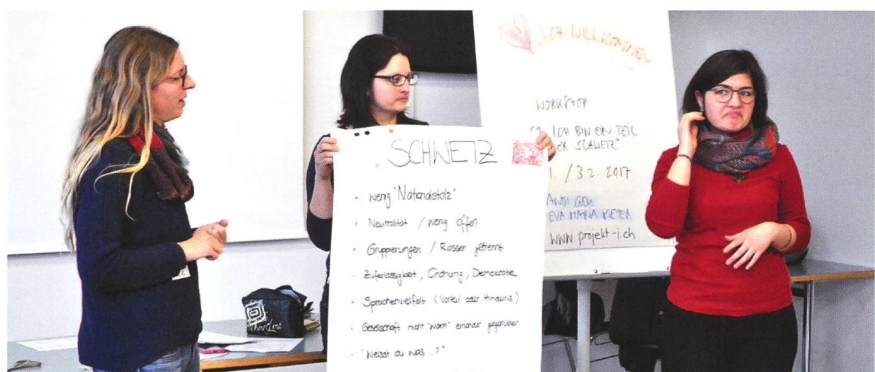 SCHWEIZ
• wenig "Nationalstolz"
• Neutralität / wenig offen
• Gruppierungen / Rassen getrennt
• Zuferlässigkeit, Ordnung, Demokratie
• Sprachenvielfalt (Vorteil oder Hindernis)
• Gesellschaft nicht "warm" einander gegenüber
• "Weisst du was...?"
LICH WILLKOMMEN
WORKSHOP
ICH BIN EIN TEIL
DER SCHWEIZ"
/ 3.2. 2017
EVA MARIA
www.projekt-i.ch